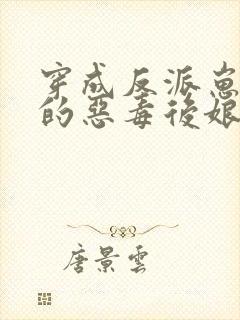 穿成反派崽
的惡毒後娘
唐景雲